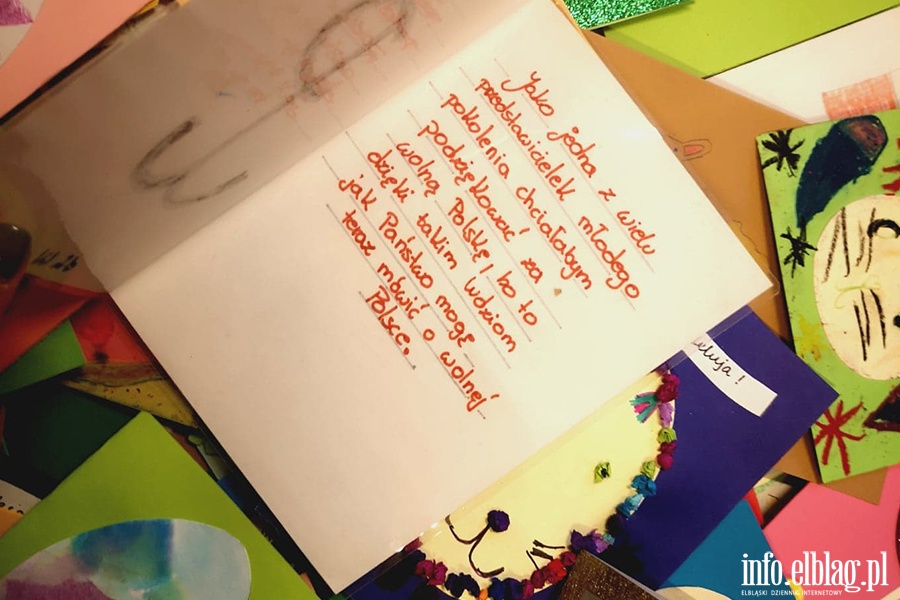 Jako jedna z wielu
przedstawicielek młodego
pokolenia chciałabym
podziękować za
wolną Polskę! bo to
dzięki takim ludziom
jak Państwo mogę
teraz mówić o wolnej
Polsce.
eluja!
info.elblag.pl
ELBLĄSKI DZIENNIK INTERNETOWY